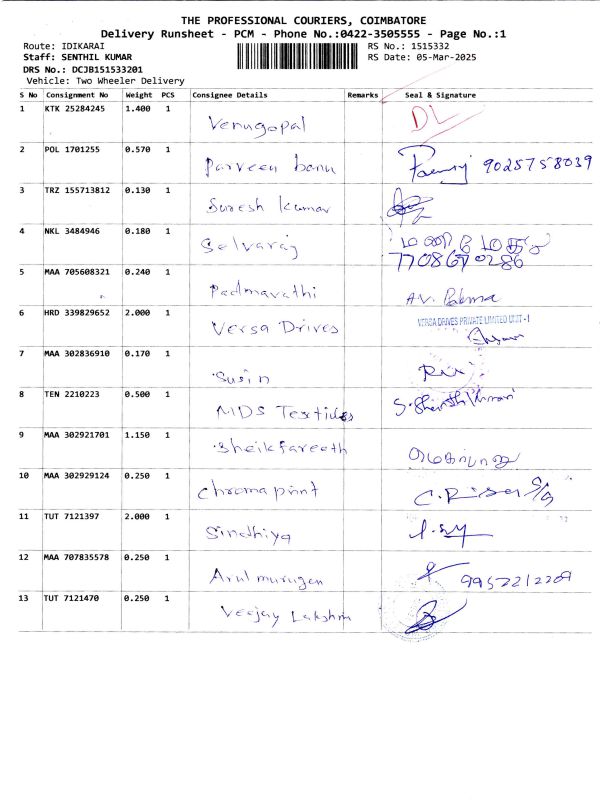 THE PROFESSIONAL COURIERS, COIMBATORE
Delivery Runsheet - PCM - Phone No.:0422-3505555 - Page No.:1
Route: IDIKARAI RS No.: 1515332
Staff: SENTHIL KUMAR RS Date: 05-Mar-2025
DRS No.: DCJB151533201
Vehicle: Two Wheeler Delivery
S No Consignment No Weight PCS Consignee Details Remarks Seal & Signature
1 KTK 25284245 1.400 1 Venugopal DL
2 POL 1701255 0.570 1 Parveen banu 9025758039
3 TRZ 155713812 0.130 1 Suresh kumar
4 NKL 3484946 0.180 1 Selvaraj
7708670286
5 MAA 705608321 0.240 1 Padmavathi A.V. Padma
6 HRD 339829652 2.000 1 Versa Drives VERSA DRIVES PRIVATE LIMITED UNIT - 1
7 MAA 302836910 0.170 1 Susin
8 TEN 2210223 0.500 1 MDS Textiles
9 MAA 302921701 1.150 1 Sheikfareeth
10 MAA 302929124 0.250 1 Chromaprint
11 TUT 7121397 2.000 1 Sindhiya
12 MAA 707835578 0.250 1 Arulmurugan 9952212209
13 TUT 7121470 0.250 1 Veejay Lakshmi